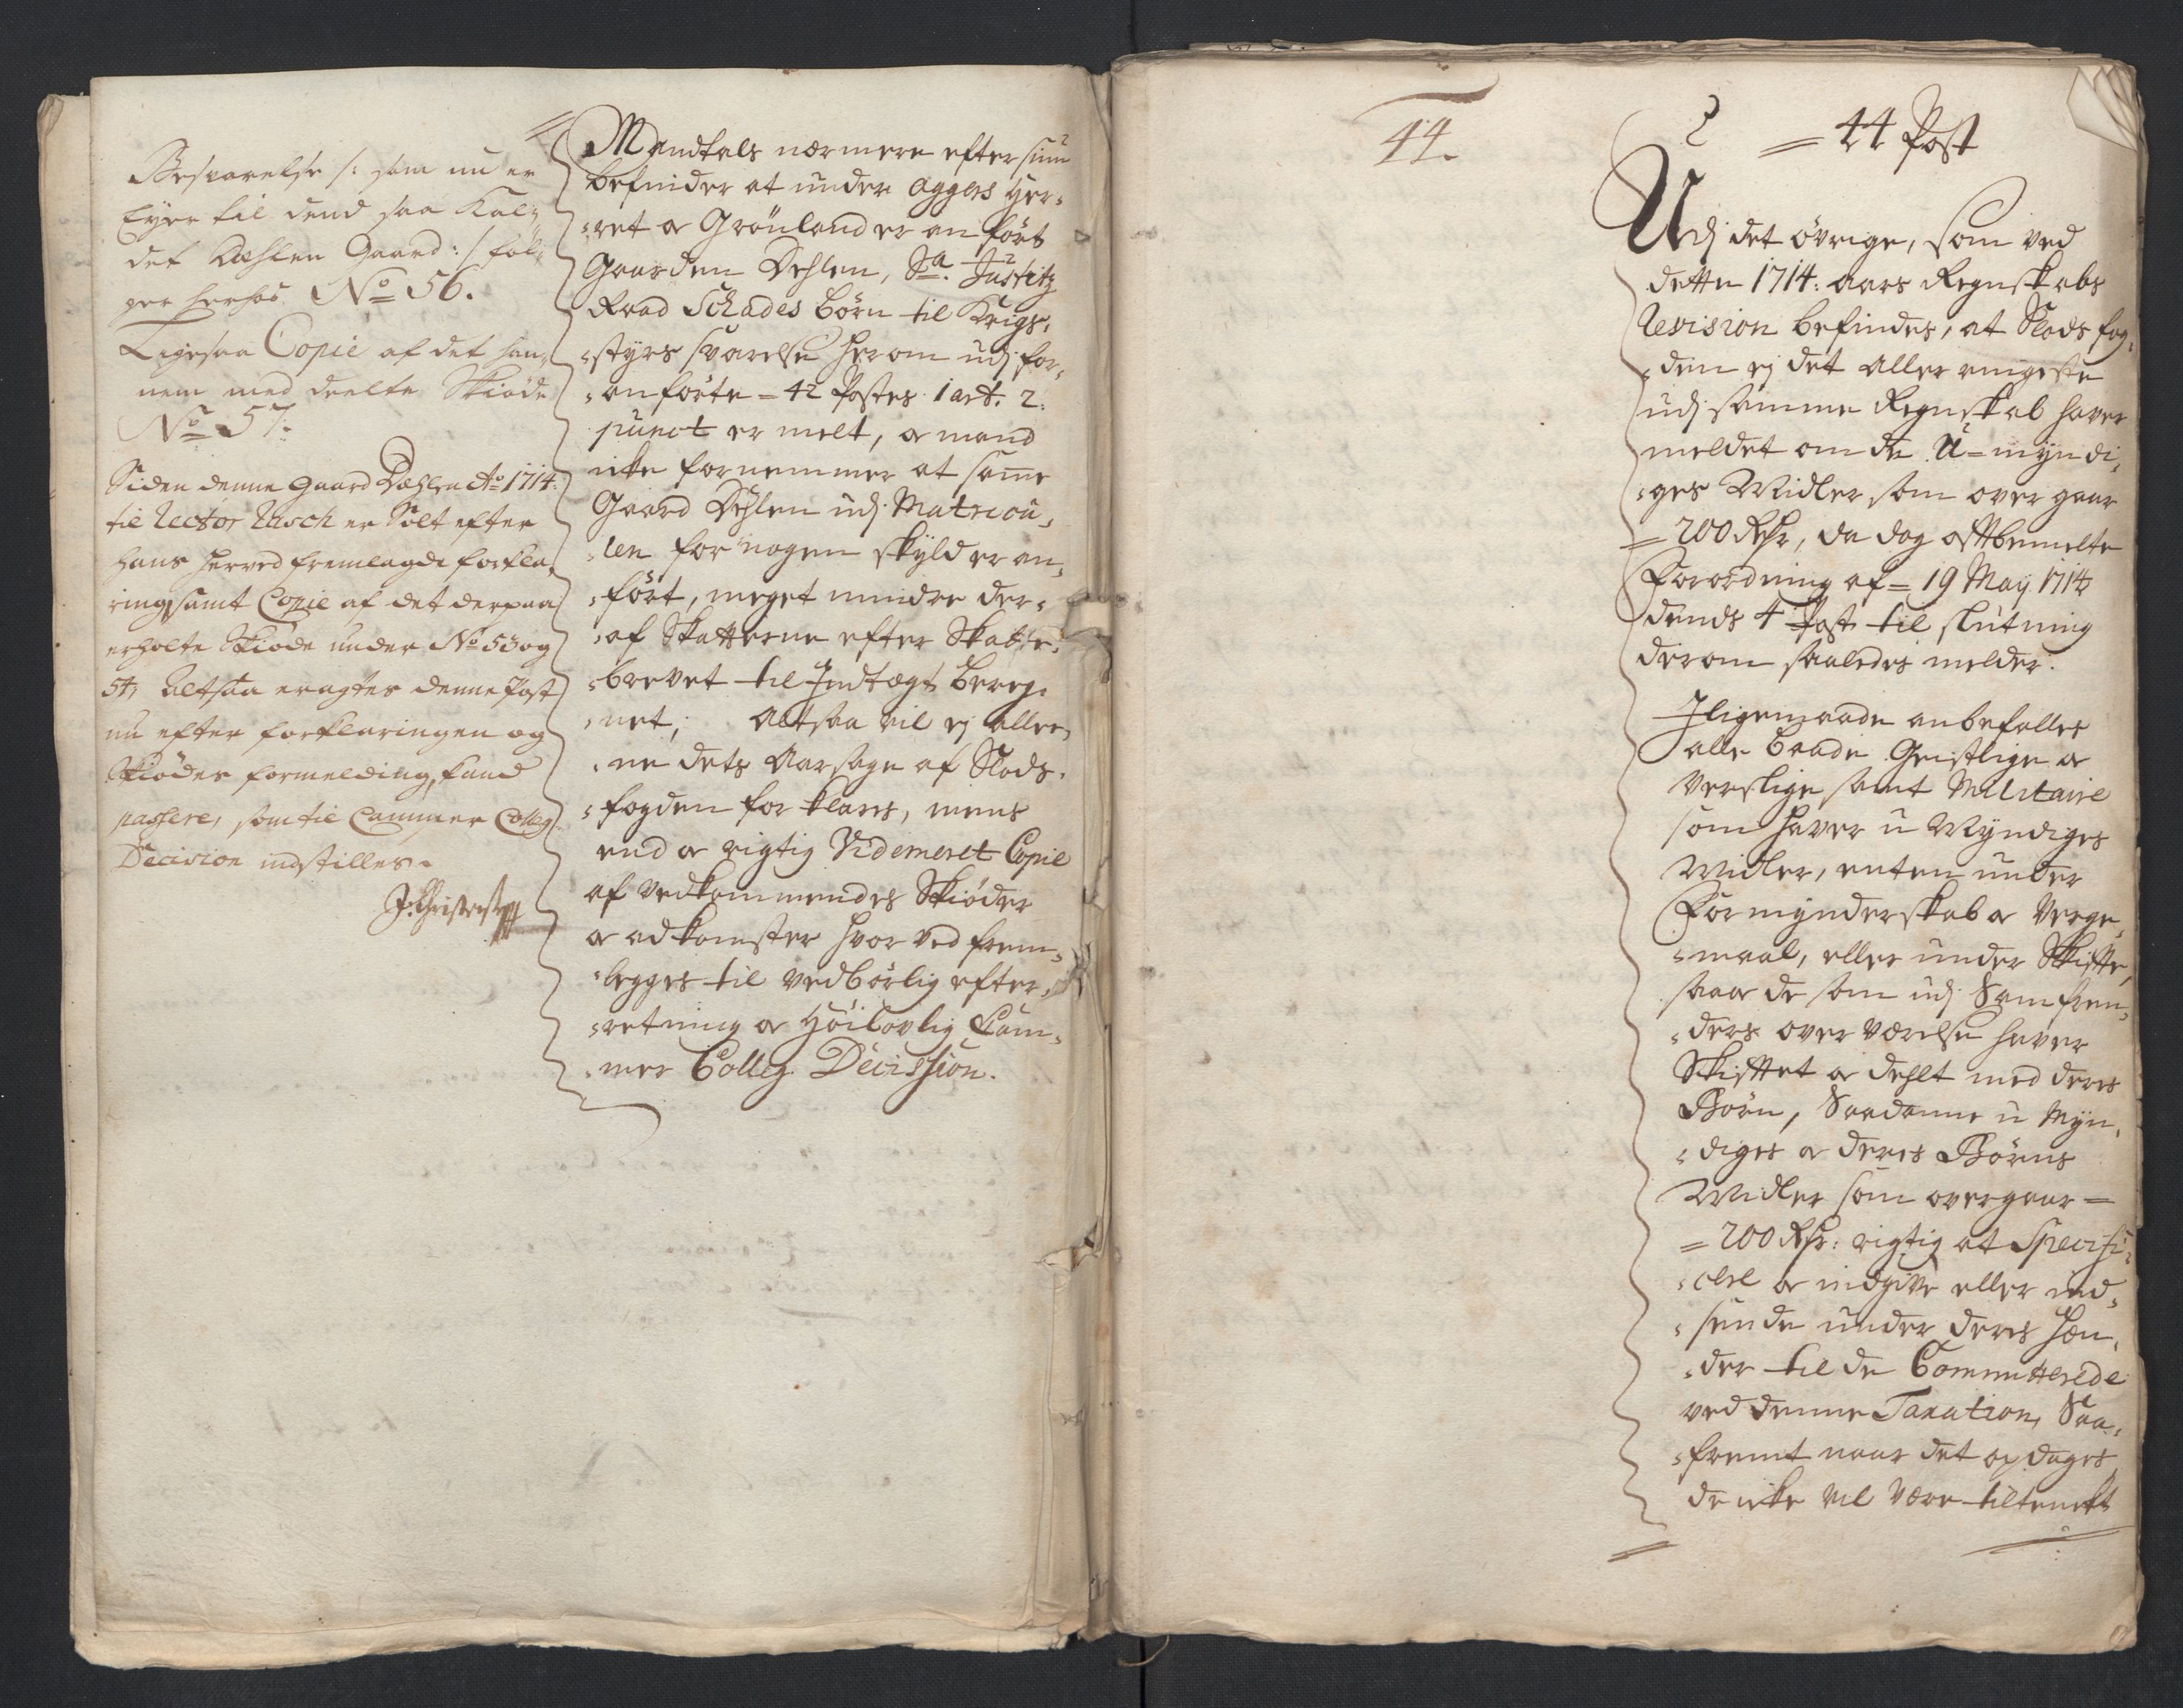 Besvarelse /: som nu er
Eyer til dend saa kal,
det Dæhlen Gaard :/ føl,
ger herhos No 56.
Ligesaa Copie af det han,
nem med deelte Skiøde
No 57.
Siden denne gaard Dæhlen Ao 1714.
til Rector Rosch er Solt efter
hans herved fremlagde forkla,
ring, samt Copie af det derpaa
erholte Skiøde under No 53 og
54, Altsaa eragtes denne Post
nu efter forklaringen og
Skiødes formelding, kand
passere, som til Cammer Colleg.
Decision indstilles.
J. Christensen
Mandtals nærmere eftersiun
befinder at under Aggers Her,
ret og Grønland er anført
Gaarden Dehlen, Sa. Justitz
Raad Schades børn til Krigs,
styrs svarelse herom udj for,
anførte = 42 Postes 1 art. 2.
punct er melt, og mand
icke fornemmer at samme
Gaard Dehlen udj Matricu,
len for nogen skyld er an,
ført, meget mindre der,
af Skatterne efter Skatte,
brevet til Indtægt bereg,
net; Altsaa vil ej alle,
ne dets Aarsage af Slods,
fogden forklares, mens
end og rigtig Videmeret Copie
af vedkommendes Skiøder
og adkomster hvorved frem,
legges til vedbørlig efter,
retning og Høilovlig Cam,
mer Colleg. Decission.
44.
= 44 Post
Udj det øvrige, som ved
dette 1714: Aars Regnskabs
Revision befindes, at Slods fog,
den ej det Aller ringeste
udj samme Regnskab haver
meldet om de U=myndi,
ges Midler som over gaar
= 200 Rdr, da dog oftbemelte
Forordning af = 19 May 1714
dends 4 Post til slutning
derom saaledes melder.
Iligemaade anbefalles
alle baade Geistlige og
Verslige samt Militaire
som haver u Myndiges
Midler, enten under
Formynderskab og Verge,
maal, eller under Skifte,
saa og de som udj Samfren,
ders overværelse haver
Skifttet og dehlt med deres
Børn, Saadanne u Myn,
diges og deres Børns
Midler som overgaar =
= 200 Rdr: rigtig at Specifi,
cere og indgive eller ind,
sende under deres Hæn,
der til de Committerede
ved denne Taxation, Saa,
fremt naar det opdages
de icke vil være tiltenckt